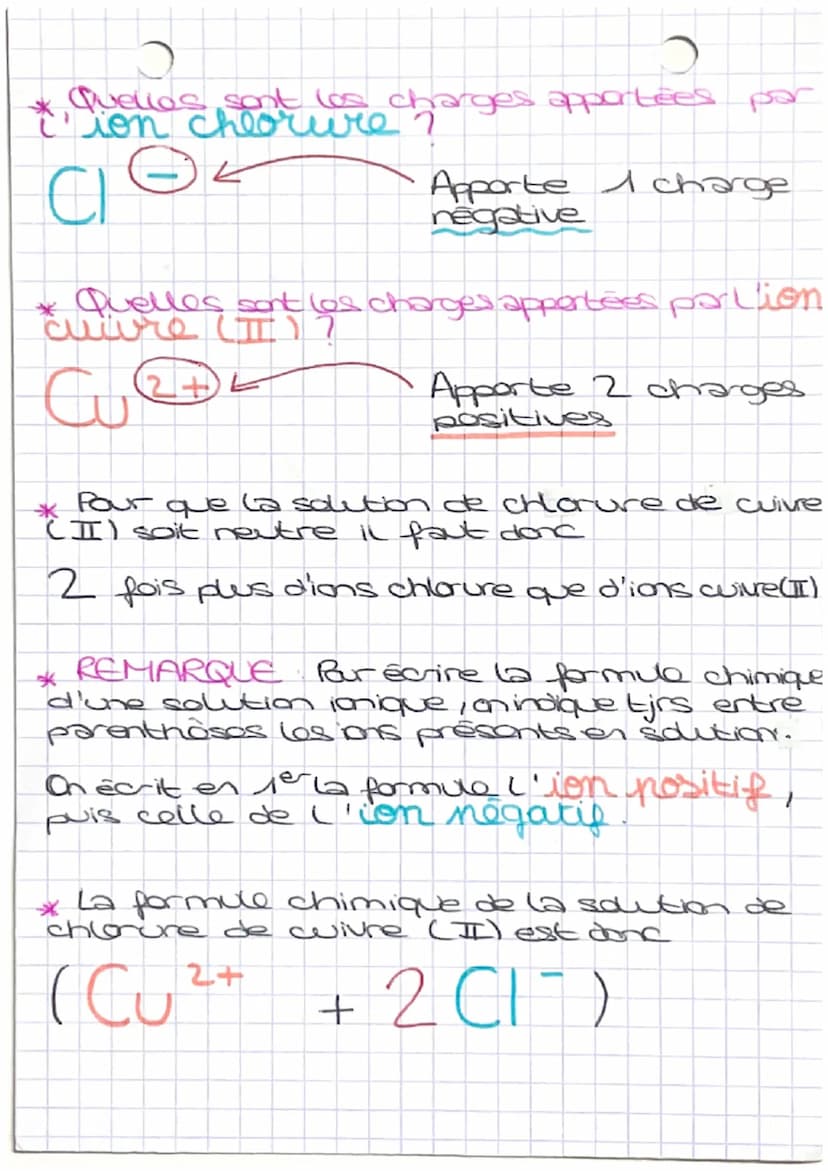 * Quelles sont les charges apportées par
l'ion chlorure ?
Cl ⁻ Apporte 1 charge
négative
* Quelles sont les charges apportées par l'ion
cuivre (II) ?
Cu ²⁺ Apporte 2 charges
positives
* Pour que la solution de chlorure de cuivre
(II) soit neutre il faut donc
2 fois plus d'ions chlorure que d'ions cuivre(II)
* REMARQUE : Pour écrire la formule chimique
d'une solution ionique, on indique tjrs entre
parenthèses les ions présents en solution.
On écrit en 1er la formule l'ion positif,
puis celle de l'ion négatif.
* La formule chimique de la solution de
chlorure de cuivre (II) est donc
(Cu²⁺ + 2 Cl⁻)